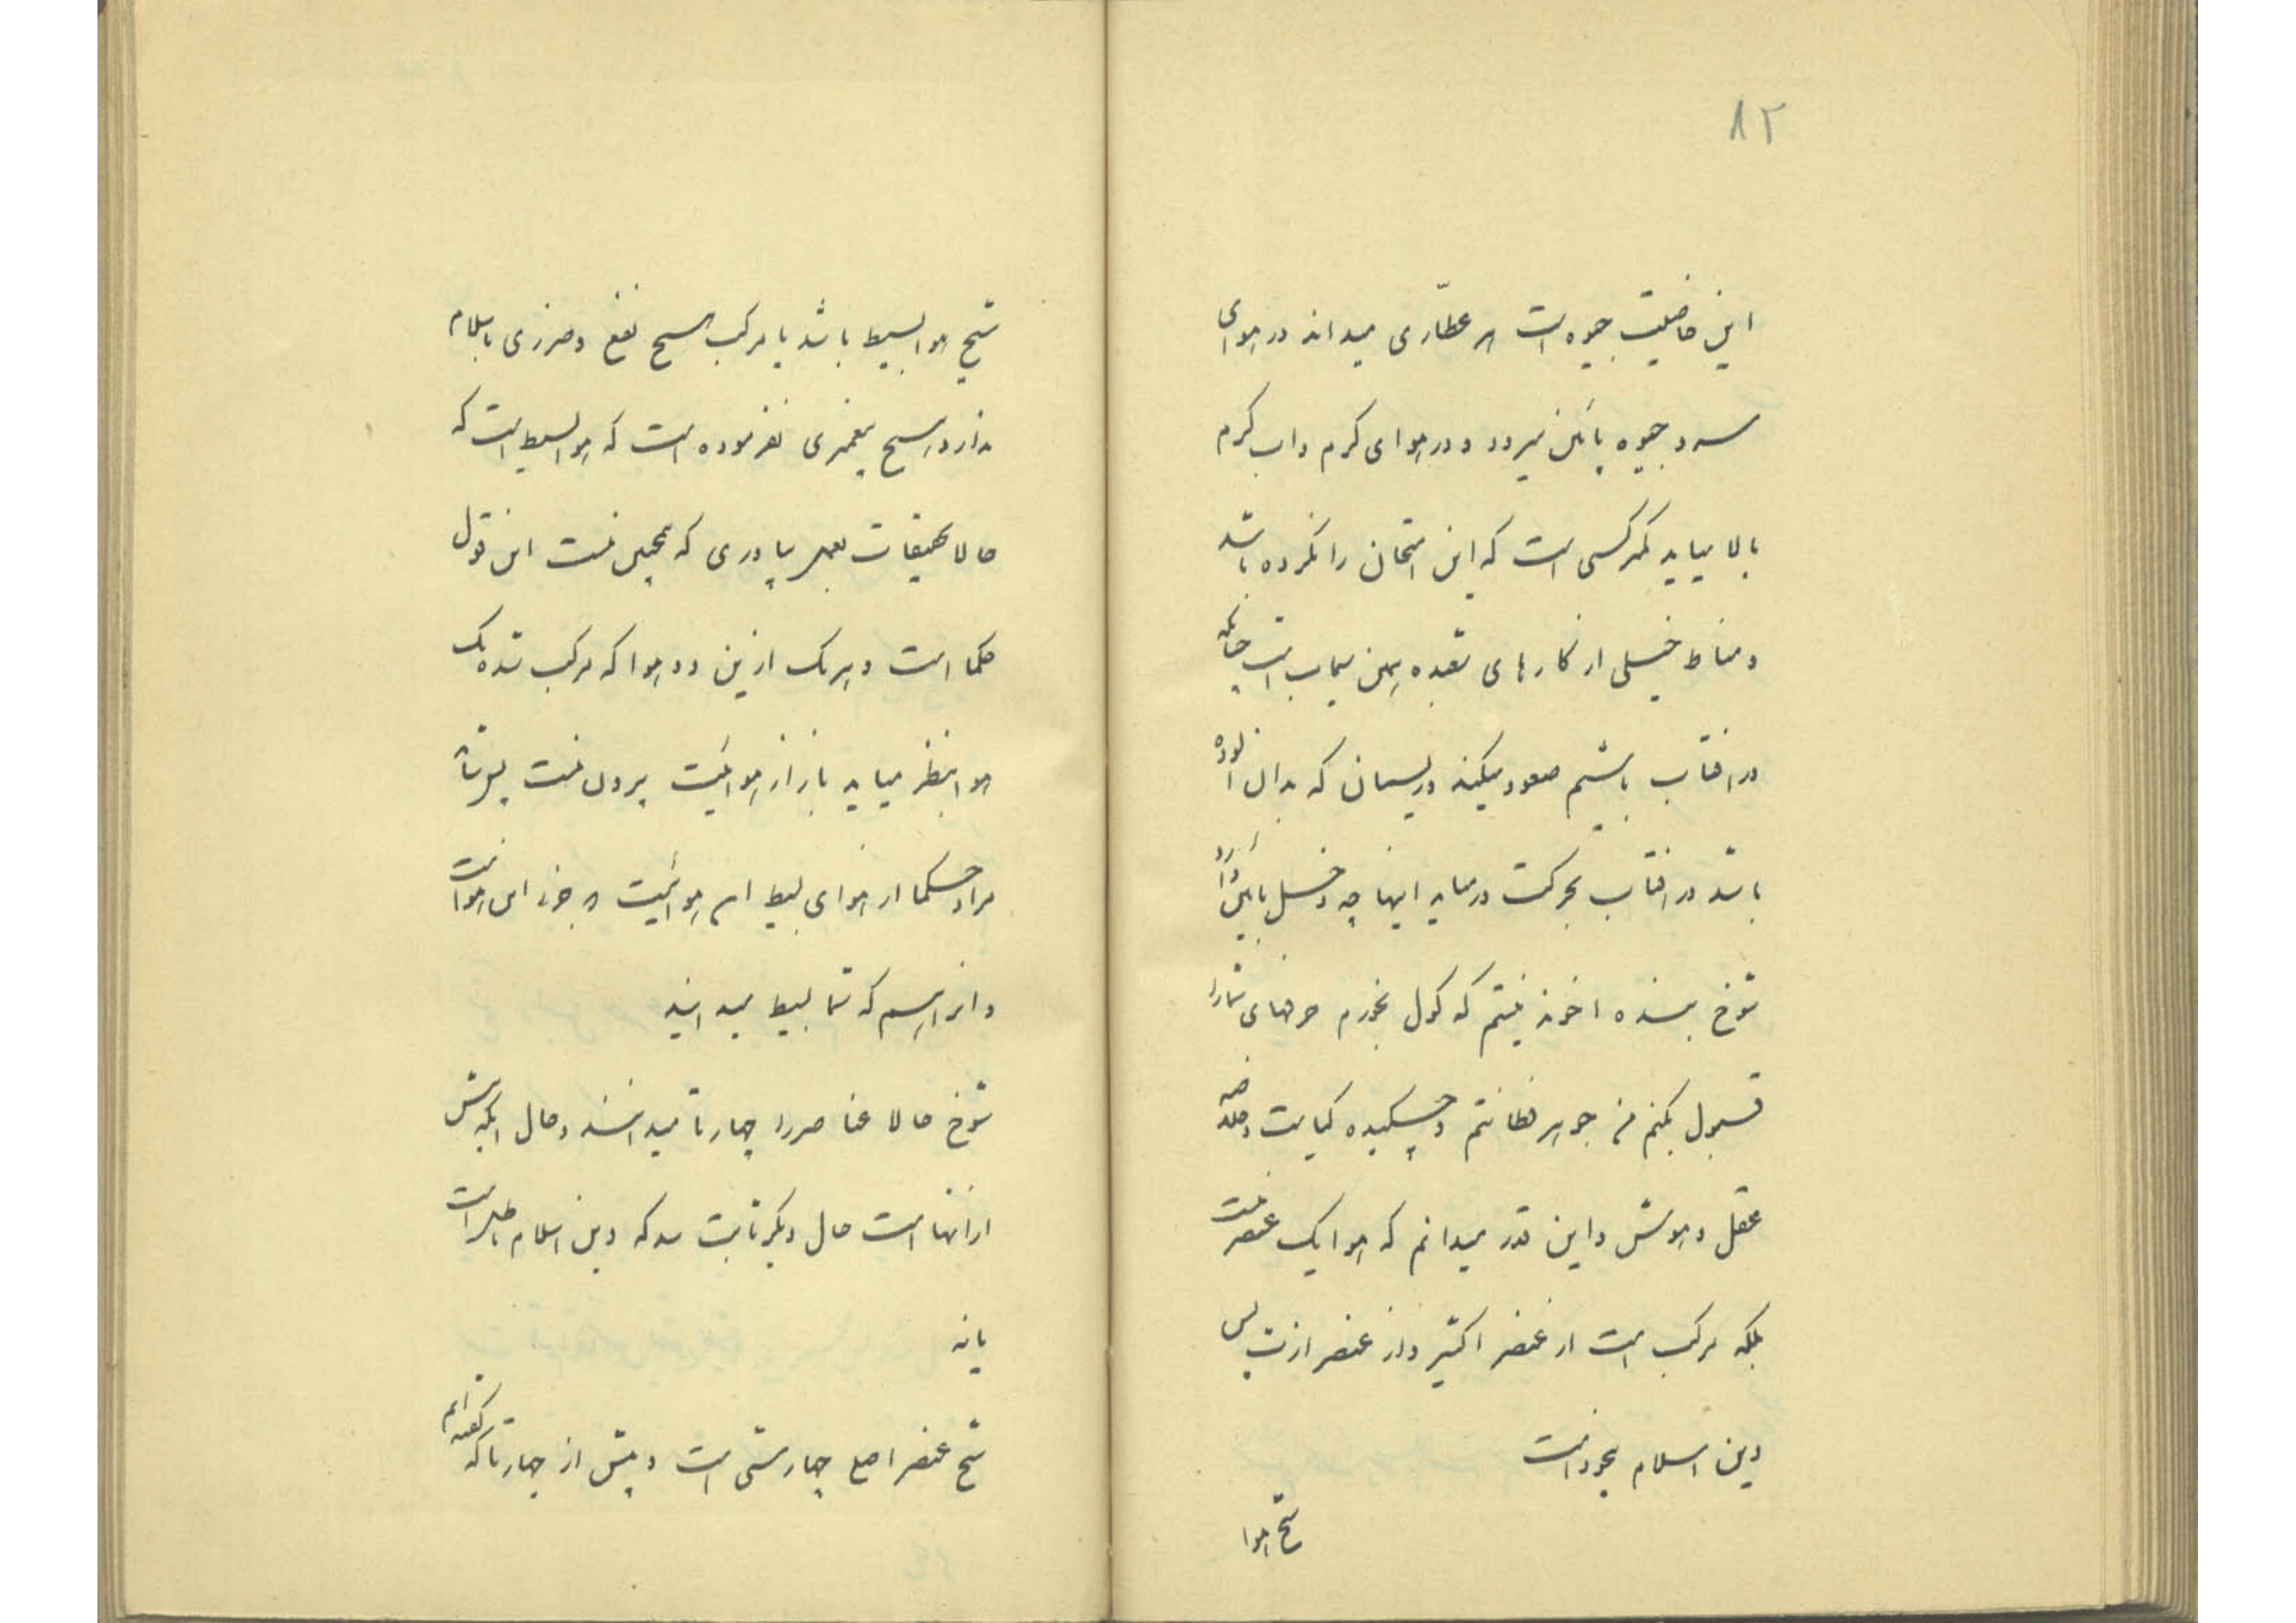 ۸۲
این خاصیت جیوه است هر عطّاری میداند در هوای
سرد جیوه پائین میرود و در هوای کرم و اب کرم
بالا میاید کمتر کسی است که این امتحان را نکرده باشد
و مناط خیلی از کارهای شعبده همین سیماب است چنانکه
در افتاب باشیم صعود میکند و ریسمان که بدان الوده
باشد در افتاب بحرکت درمیاید اینها چه دخل باین دارد
شوخ بنده اخوند نیستم که کول بخورم حرفهای شما را
قبول بکنم من جوهر فطانتم و چکیده کیاست و خلاصه
عقل و هوش و این قدر میدانم که هوا یک عنصر نیست
بلکه مرکب است از عنصر اکثیر و از عنصر ازت پس
دین اسلام بیخود است
شیخ هوا
شیخ هوا بسیط باشد یا مرکب هیچ نفع و ضرری باسلام
ندارد هیچ پیغمبری نفرموده است که هوا بسیط است که
حالا تحقیقات بعمل بیاوری که همچنین نیست این قول
حکما است و هر یک از این دو هوا که مرکب شده یک
هوا بنظر میاید باز از هوائیت بیرون نیست
مراد حکما از هوای بسیط هوائیت جزء این هوا است
و انرا هم که شما بسیط میدانید
شوخ حالا عناصر را چهار تا میدانند و حال انکه بیش
از انها است حال دیگر ثابت شد که دین اسلام باطل است
یا نه
شیخ عنصر اصلع چهارشی است و بیش از چهار تا که کفته ایم